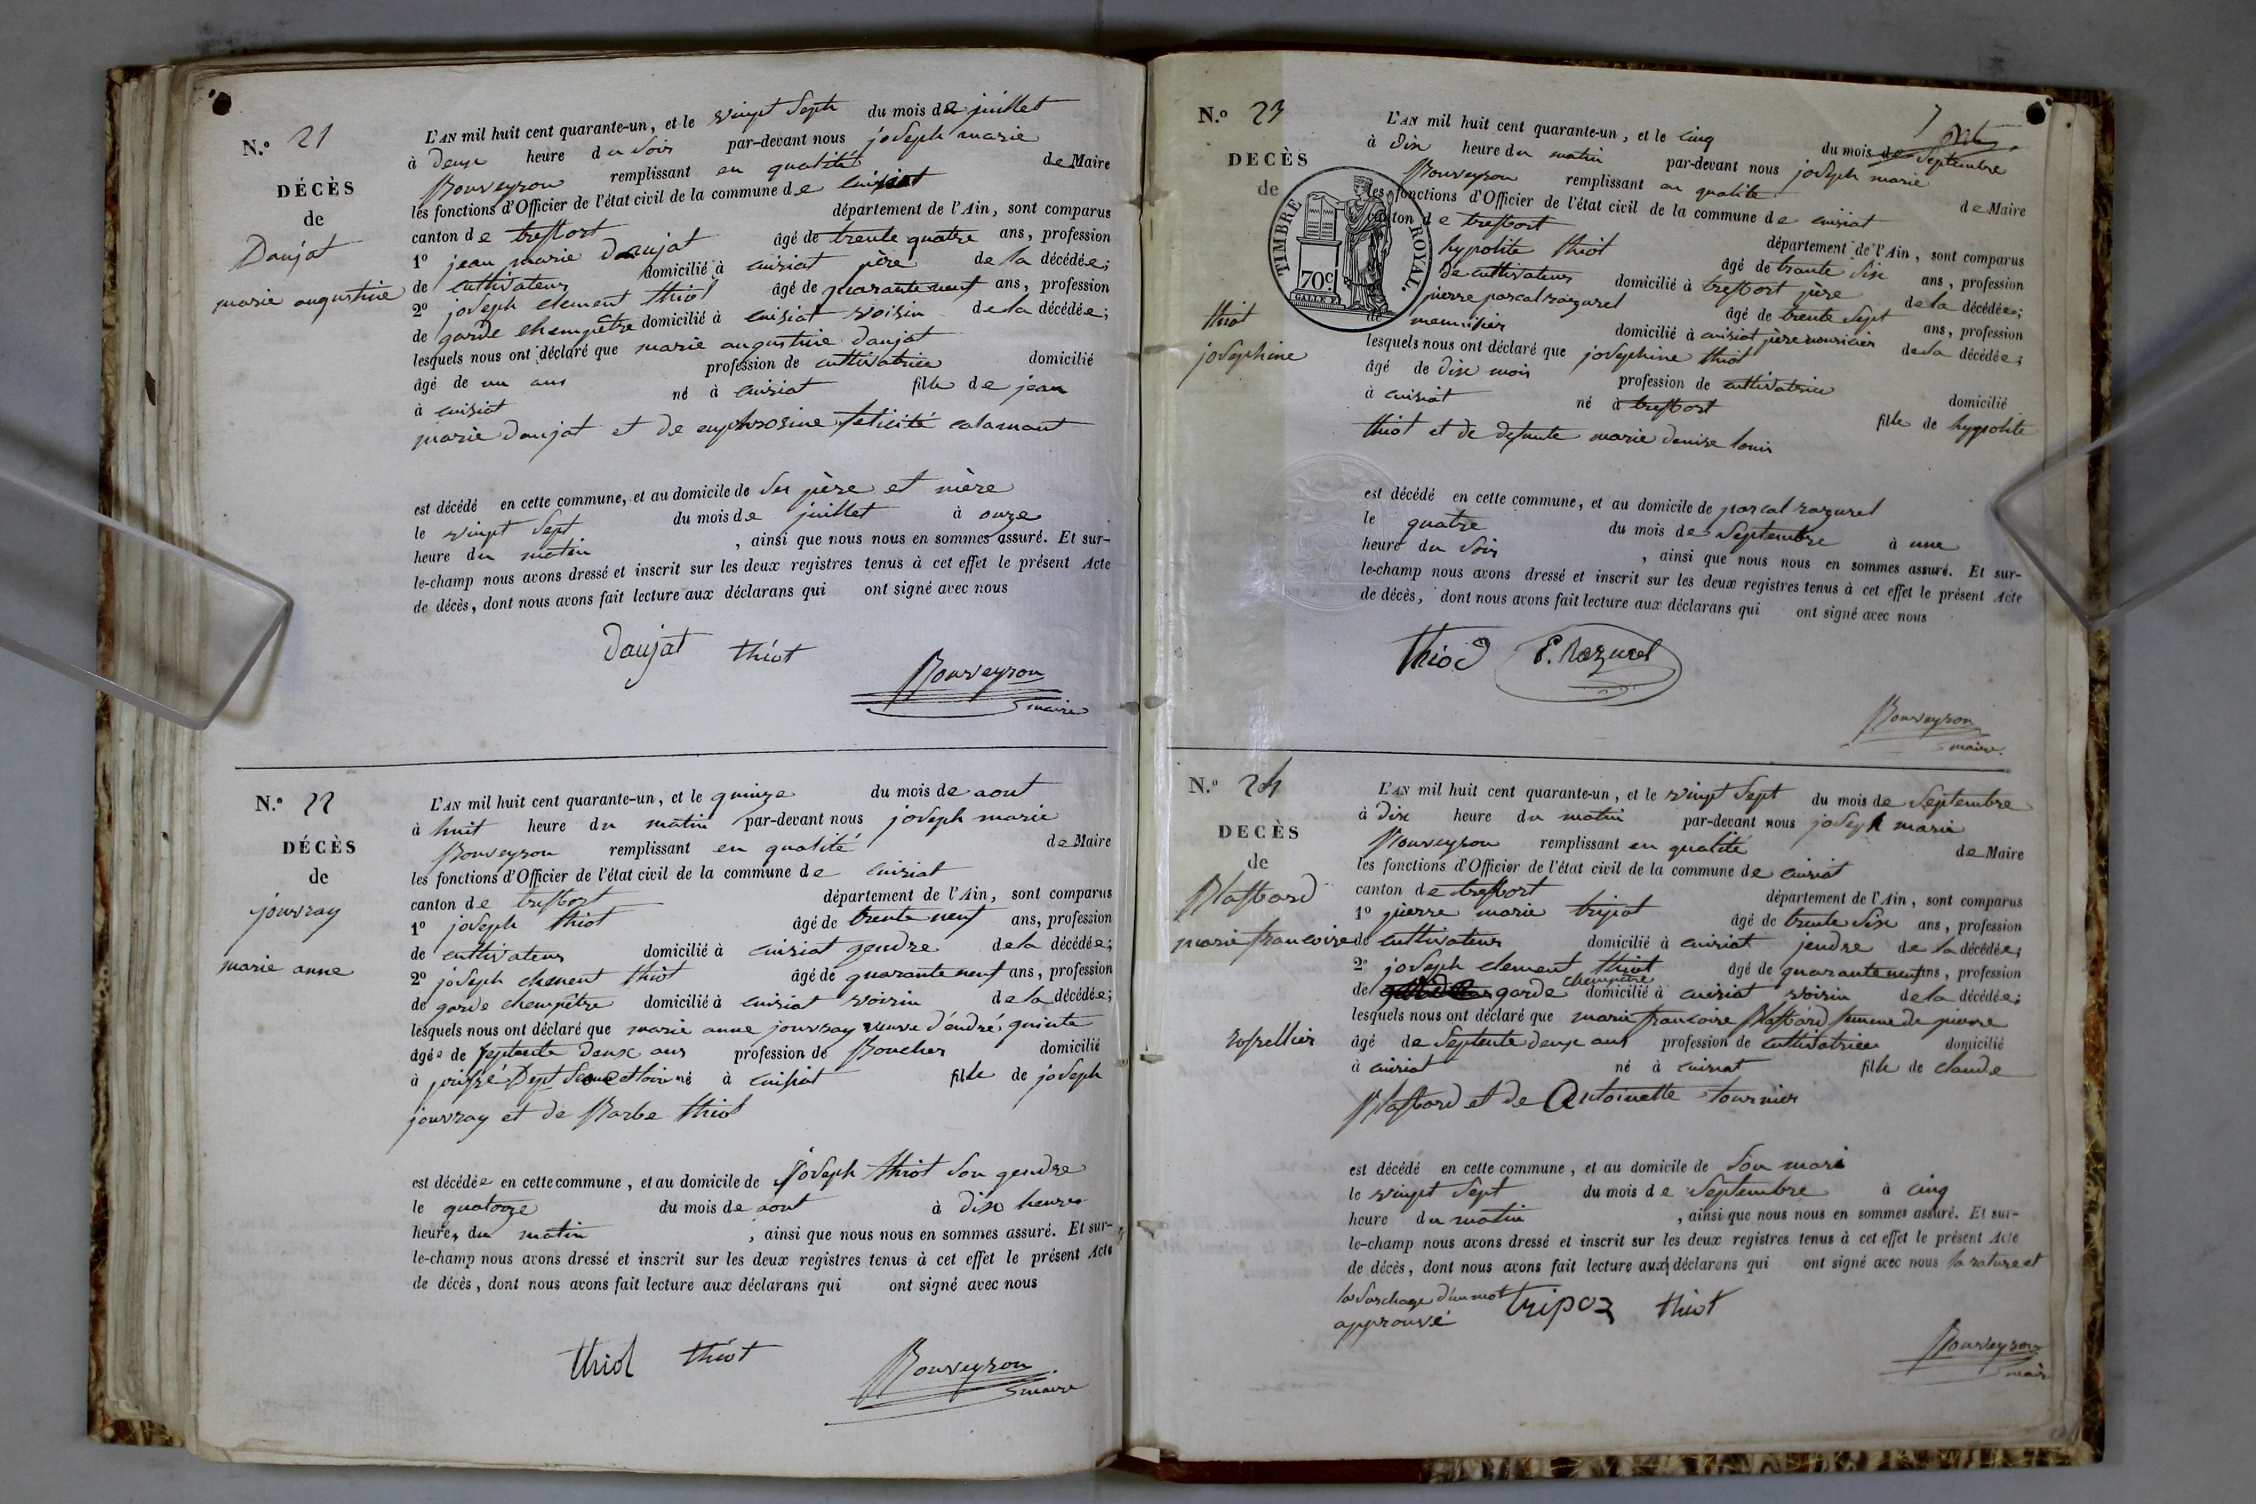 N.o 21
DÉCÈS
de
Daujat
marie augustine
L'AN mil huit cent quarante-un, et le vingt sept du mois de juillet
à deux heure du soir par-devant nous joseph marie
Bouveyron remplissant en qualité de Maire
les fonctions d'Officier de l'état civil de la commune de cuisiat
canton de treffort département de l'Ain, sont comparus
1o jean marie daujat âgé de trente quatre ans, profession
de cultivateur domicilié à cuisiat père de la décédée;
2o joseph clement thiot âgé de quarante neuf ans, profession
de garde champêtre domicilié à cuisiat voisin de la décédée;
lesquels nous ont déclaré que marie augustine daujat
âgé de un ans profession de cultivatrice domicilié
à cuisiat né à cuisiat fille de jean
marie daujat et de euphrosine felicité calamant
est décédé en cette commune, et au domicile de ses père et mère
le vingt sept du mois de juillet à onze
heure du matin, ainsi que nous nous en sommes assuré. Et sur-
le-champ nous avons dressé et inscrit sur les deux registres tenus à cet effet le présent Acte
de décès, dont nous avons fait lecture aux déclarans qui ont signé avec nous
Daujat thiot
Bouveyron
maire
N.o 22
DÉCÈS
de
jouvray
marie anne
L'AN mil huit cent quarante-un, et le quinze du mois de aout
à huit heure du matin par-devant nous joseph marie
Bouveyron remplissant en qualité de Maire
les fonctions d'Officier de l'état civil de la commune de cuisiat
canton de treffort département de l'Ain, sont comparus
1o joseph thiot âgé de trente neuf ans, profession
de cultivateur domicilié à cuisiat gendre de la décédée;
2o joseph clement thiot âgé de quarante neuf ans, profession
de garde champêtre domicilié à cuisiat voisin de la décédée;
lesquels nous ont déclaré que marie anne jouvray veuve d'andré quinte
âgée de septente deux ans profession de Boucher domicilié
à Dept né à cuisiat fille de joseph
jouvray et de Barbe thiot
est décédée en cette commune, et au domicile de joseph thiot son gendre
le quatorze du mois de aout à dix heures
heures du matin, ainsi que nous nous en sommes assuré. Et sur-
le-champ nous avons dressé et inscrit sur les deux registres tenus à cet effet le présent Acte
de décès, dont nous avons fait lecture aux déclarans qui ont signé avec nous
thiot thiot
Bouveyron
maire
N.o 23
DECÈS
de
thiot
josephine
TIMBRE ROYAL.
70c.
L'AN mil huit cent quarante-un, et le cinq du mois de Septembre
à dix heure du matin par-devant nous joseph marie
Bouveyron remplissant en qualité de Maire
les fonctions d'Officier de l'état civil de la commune de cuisiat
canton de treffort département de l'Ain, sont comparus
hypolite thiot âgé de trante six ans, profession
de cultivateur domicilié à treffort père de la décédée;
pierre pascal razurel âgé de trente sept ans, profession
de menuisier domicilié à cuisiat père nouricier de la décédée;
lesquels nous ont déclaré que josephine thiot
âgé de dix mois profession de cultivatrice domicilié
à cuisiat né à treffort fille de hypolite
thiot et de defunte marie denise louis
est décédé en cette commune, et au domicile de pascal razurel
le quatre du mois de Septembre à une
heure du soir, ainsi que nous nous en sommes assuré. Et sur-
le-champ nous avons dressé et inscrit sur les deux registres tenus à cet effet le présent Acte
de décès, dont nous avons fait lecture aux déclarans qui ont signé avec nous
thiot P. Razurel
Bouveyron
maire.
N.o 24
DECÈS
de
Blatbard
marie francoise
L'AN mil huit cent quarante-un, et le vingt sept du mois de Septembre
à dix heure du matin par-devant nous joseph marie
Bouveyron remplissant en qualité de Maire
les fonctions d'Officier de l'état civil de la commune de cuisiat
canton de treffort département de l'Ain, sont comparus
1o pierre marie tripot âgé de trente six ans, profession
de cultivateur domicilié à cuisiat jendre de la décédée;
2o joseph clement thiot âgé de quarante neuf ans, profession
de garde champêtre domicilié à cuisiat voisin de la décédée;
lesquels nous ont déclaré que marie francoise Blatbard femme de pierre
rosrellier âgé de septente deux ans profession de cultivatrice domicilié
à cuisiat né à cuisiat fille de claude
Blatbard et de Antoinette tournier
est décédé en cette commune, et au domicile de son mari
le vingt sept du mois de Septembre à cinq
heure du matin, ainsi que nous nous en sommes assuré. Et sur-
le-champ nous avons dressé et inscrit sur les deux registres tenus à cet effet le présent Acte
de décès, dont nous avons fait lecture aux déclarans qui ont signé avec nous la rature et
la surchage d'un mot
approuvé tripoz thiot
Bouveyron
maire